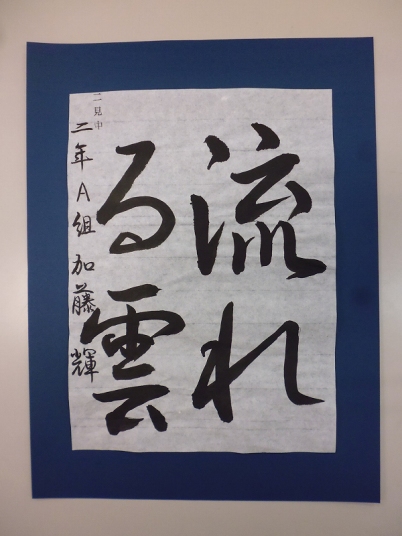 流れ
る雲
二見中
二年A組加藤輝